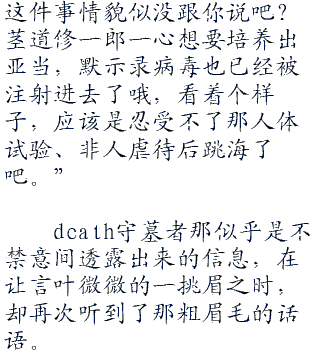 这件事情貌似没跟你说吧？
茎道修一郎一心想要培养出
亚当，默示录病毒也已经被
注射进去了哦，看着个样
子，应该是忍受不了那人体
试验、非人虐待后跳海了
吧。”
dcath守墓者那似乎是不
禁意间透露出来的信息，在
让言叶微微的一挑眉之时，
却再次听到了那粗眉毛的话
语。